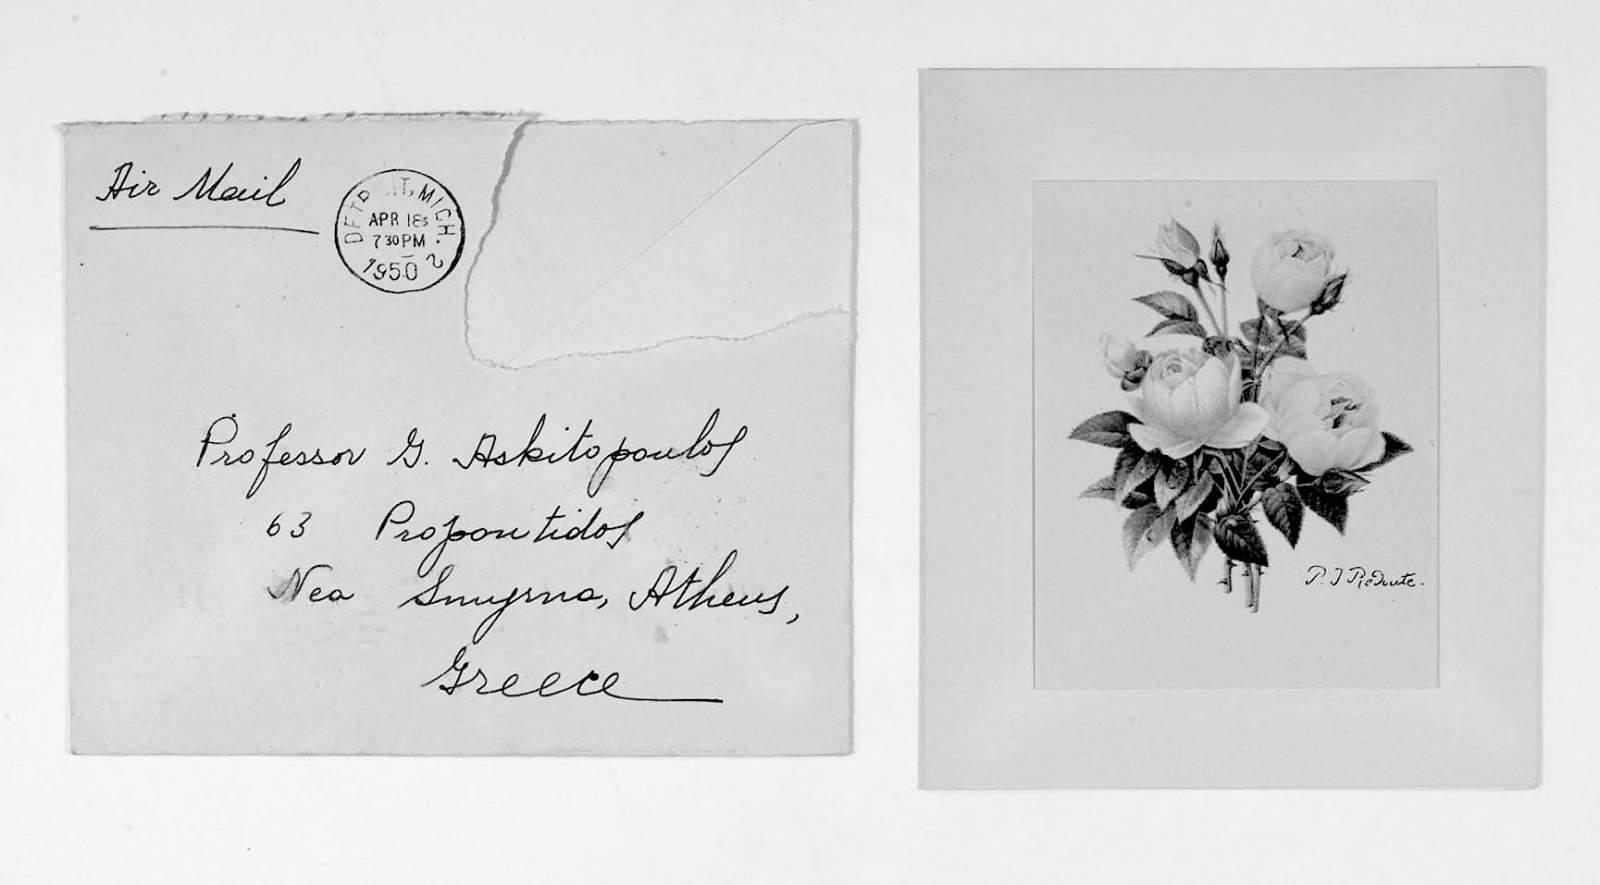 Air Mail
DETROIT, MICH.
APR 18
7 30 PM
1950
2
Professor G. Askitopoulos
63 Propontidos
Nea Smyrna, Athens,
Greece
P. J. Redoute.